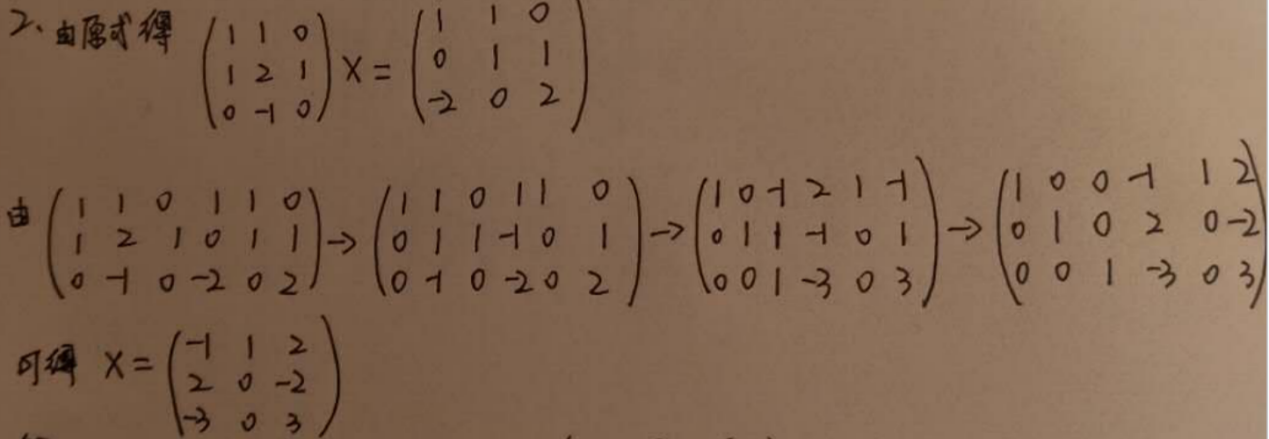 2、由原式得 \begin{pmatrix} 1 & 1 & 0 \\ 1 & 2 & 1 \\ 0 & -1 & 0 \end{pmatrix} X = \begin{pmatrix} 1 & 1 & 0 \\ 0 & 1 & 1 \\ -2 & 0 & 2 \end{pmatrix}
由 \begin{pmatrix} 1 & 1 & 0 & 1 & 1 & 0 \\ 1 & 2 & 1 & 0 & 1 & 1 \\ 0 & -1 & 0 & -2 & 0 & 2 \end{pmatrix} → \begin{pmatrix} 1 & 1 & 0 & 1 & 1 & 0 \\ 0 & 1 & 1 & -1 & 0 & 1 \\ 0 & -1 & 0 & -2 & 0 & 2 \end{pmatrix} → \begin{pmatrix} 1 & 0 & -1 & 2 & 1 & -1 \\ 0 & 1 & 1 & -1 & 0 & 1 \\ 0 & 0 & 1 & -3 & 0 & 3 \end{pmatrix} → \begin{pmatrix} 1 & 0 & 0 & -1 & 1 & 2 \\ 0 & 1 & 0 & 2 & 0 & -2 \\ 0 & 0 & 1 & -3 & 0 & 3 \end{pmatrix}
可得 X = \begin{pmatrix} -1 & 1 & 2 \\ 2 & 0 & -2 \\ -3 & 0 & 3 \end{pmatrix}